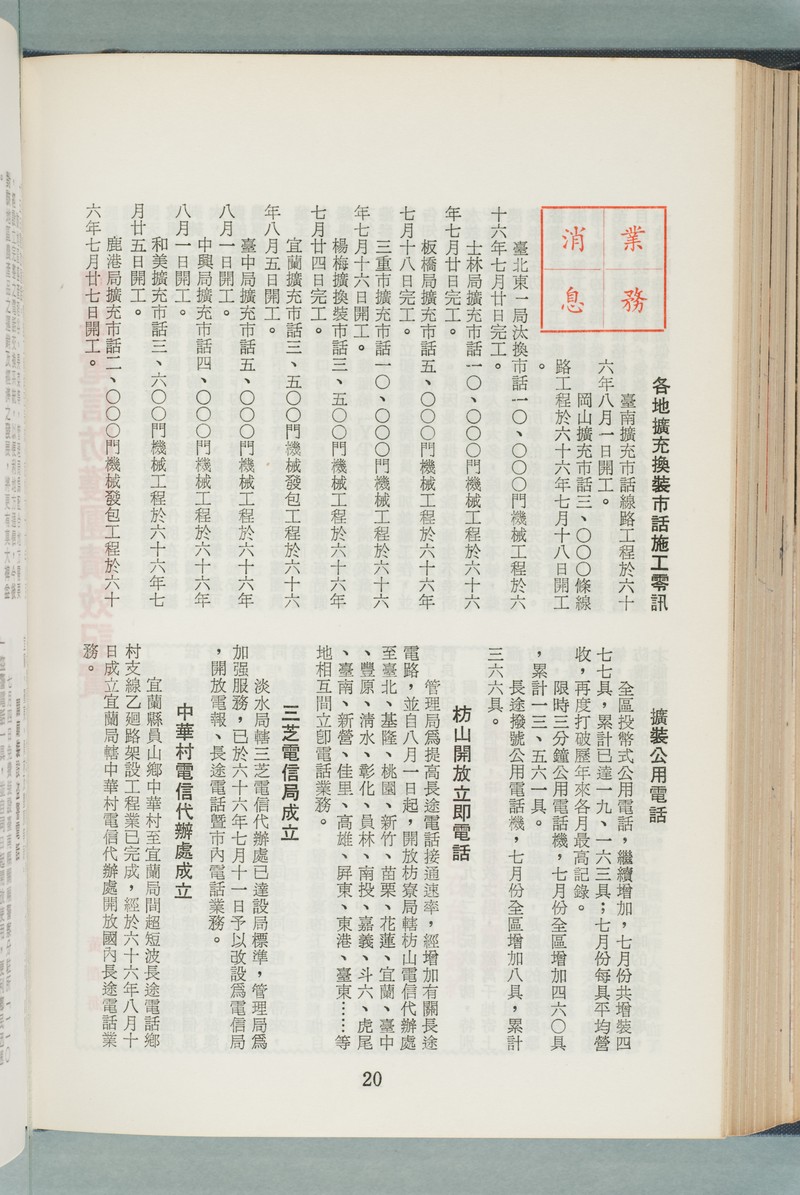 業務
消息
各地擴充換裝市話施工零訊
臺南擴充市話線路工程於六十
六年八月一日開工。
岡山擴充市話三、〇〇〇條線
路工程於六十六年七月十八日開工
。
臺北東一局汰換市話一〇、〇〇〇門機械工程於六
十六年七月廿日完工。
士林局擴充市話一〇、〇〇〇門機械工程於六十六
年七月廿日完工。
板橋局擴充市話五、〇〇〇門機械工程於六十六年
七月十八日完工。
三重市擴充市話一〇、〇〇〇門機械工程於六十六
年七月十六日開工。
楊梅擴換裝市話三、五〇〇門機械工程於六十六年
七月廿四日完工。
宜蘭擴充市話三、五〇〇門機械發包工程於六十六
年八月五日開工。
臺中局擴充市話五、〇〇〇門機械工程於六十六年
八月一日開工。
中興局擴充市話四、〇〇〇門機械工程於六十六年
八月一日開工。
和美擴充市話三、六〇〇門機械工程於六十六年七
月廿五日開工。
鹿港局擴充市話二、〇〇〇門機械發包工程於六十
六年七月廿七日開工。
擴裝公用電話
全區投幣式公用電話，繼續增加，七月份共增裝四
七七具，累計已達一九、一六三具；七月份每具平均營
收，再度打破歷年來各月最高記錄。
限時三分鐘公用電話機，七月份全區增加四六〇具
，累計一三、五六一具。
長途撥號公用電話機，七月份全區增加八具，累計
三六六具。
枋山開放立即電話
管理局爲提高長途電話接通速率，經增加有關長途
電路，並自八月一日起，開放枋寮局轄枋山電信代辦處
至臺北、基隆、桃園、新竹、苗栗、花蓮、宜蘭、臺中
、豐原、清水、彰化、員林、南投、嘉義、斗六、虎尾
、臺南、新營、佳里、高雄、屏東、東港、臺東……等
地相互間立卽電話業務。
三芝電信局成立
淡水局轄三芝電信代辦處已達設局標準，管理局爲
加强服務，已於六十六年七月十一日予以改設爲電信局
，開放電報、長途電話暨市內電話業務。
中華村電信代辦處成立
宜蘭縣員山鄉中華村至宜蘭局間超短波長途電話鄉
村支線乙迴路架設工程業已完成，經於六十六年八月十
日成立宜蘭局轄中華村電信代辦處開放國內長途電話業
務。
20